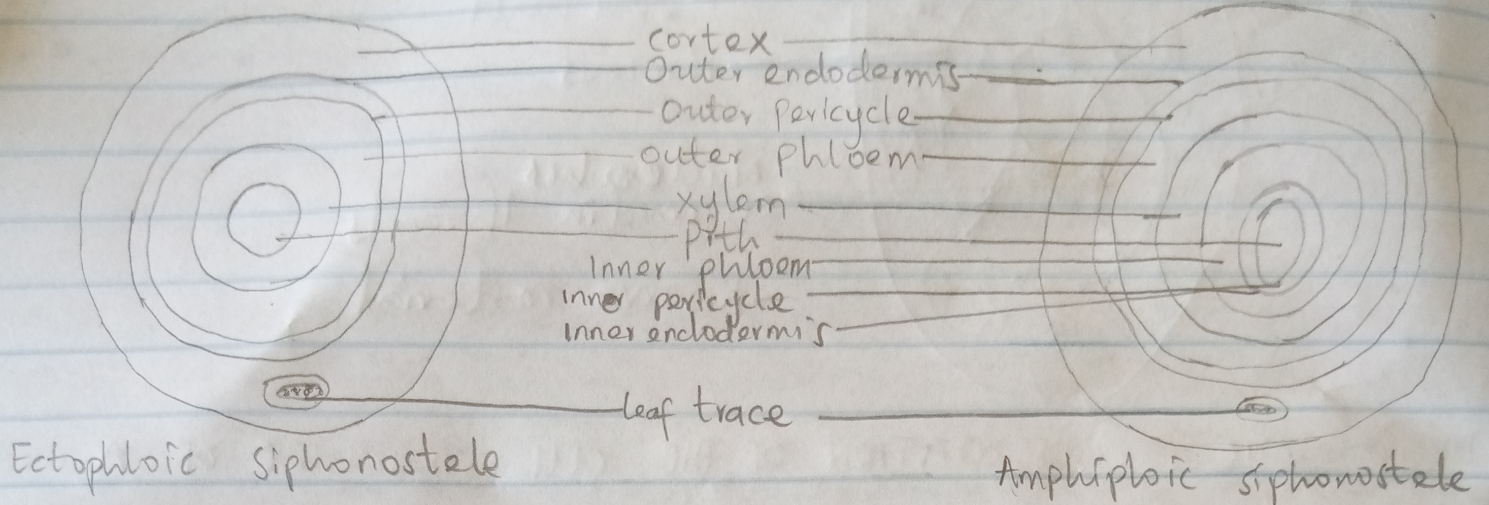 cortex
Outer endodermis
Outer pericycle
outer phloem
xylem
Pith
Inner phloem
inner pericycle
inner endodermis
leaf trace
Ectophloic siphonostele
Amphiploic siphonostele